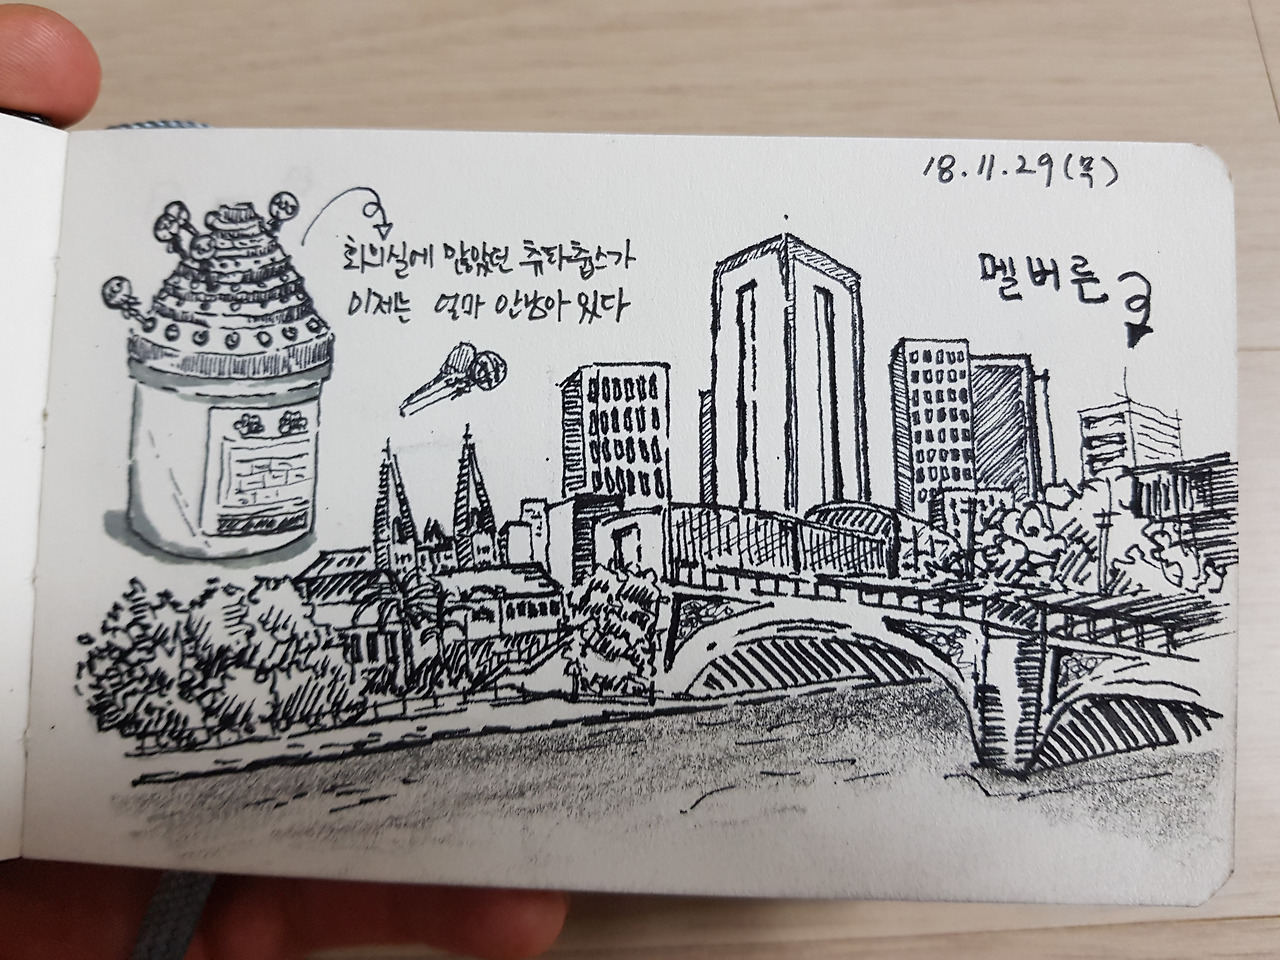 18.11.29(목)
회의실에 많았던 츄파춥스가
이제는 얼마 안남아 있다
멜버른